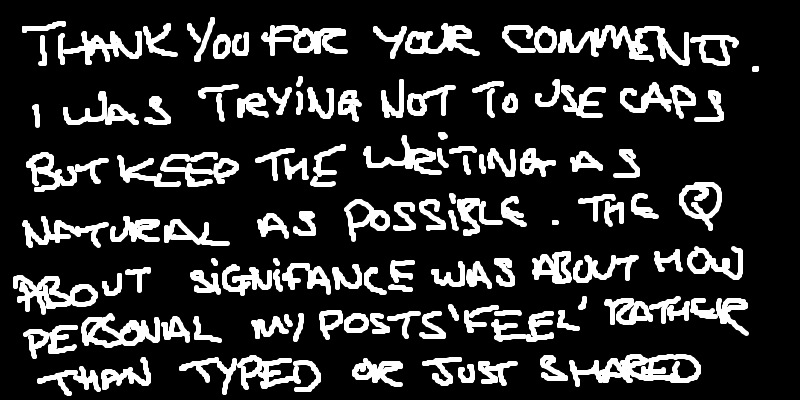 THANK YOU FOR YOUR COMMENTS.
I WAS TRYING NOT TO USE CAPS
BUT KEEP THE WRITING AS
NATURAL AS POSSIBLE. THE Q
ABOUT SIGNIFANCE WAS ABOUT HOW
PERSONAL MY POSTS 'FEEL' RATHER
THAN TYPED OR JUST SHARED